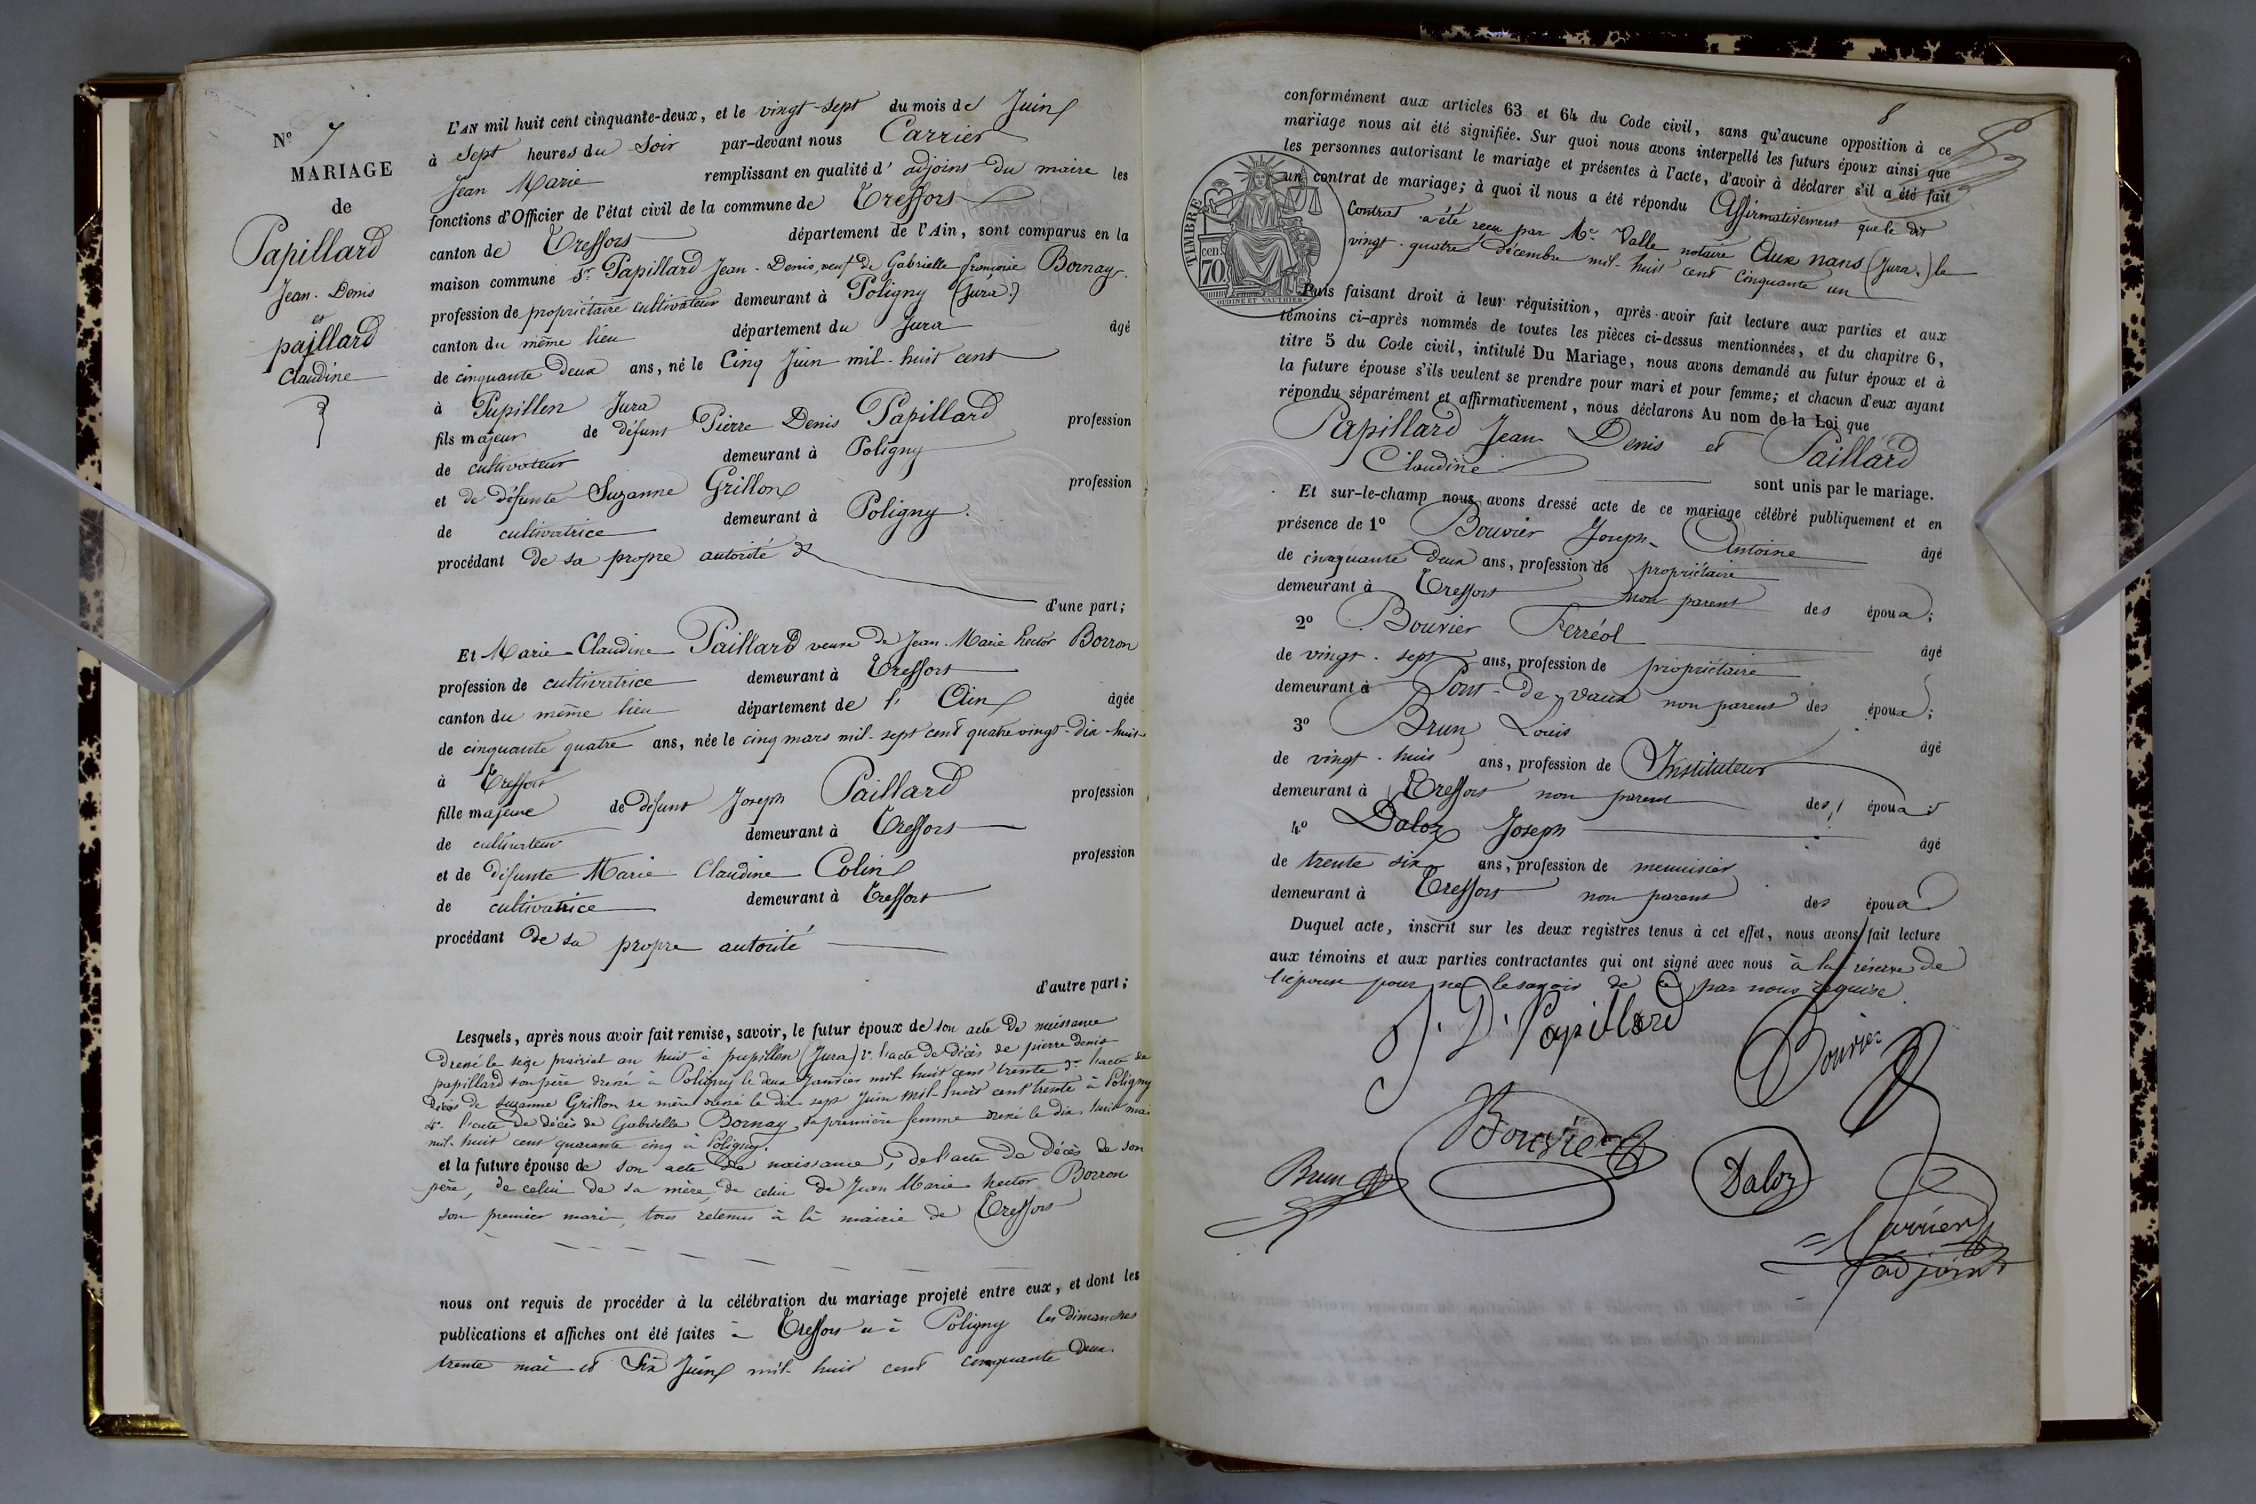 N° 7
MARIAGE
de
Papillard
Jean-Denis
et
paillard
Claudine
L'AN mil huit cent cinquante-deux, et le vingt-sept du mois de Juin
à Sept heures du Soir par-devant nous Carrier
Jean Marie remplissant en qualité d'adjoint du maire les
fonctions d'Officier de l'état civil de la commune de Treffort
canton de Treffort département de l'Ain, sont comparus en la
maison commune Sr. Papillard Jean-Denis, veuf de Gabrielle françoise Bornay.
profession de propriétaire cultivateur demeurant à Poligny (Jura.)
canton du même lieu département du Jura âgé
de cinquante deux ans, né le Cinq Juin mil-huit cent
à Pupillen Jura
fils majeur de défunt Pierre Denis Papillard profession
de cultivateur demeurant à Poligny
et de défunte Suzanne Grillon profession
de cultivatrice demeurant à Poligny.
procédant de sa propre autorité
d'une part;
Et Marie-Claudine Paillard veuve de Jean-Marie hector Borron
profession de cultivatrice demeurant à Treffort
canton du même lieu département de l'Ain âgée
de cinquante quatre ans, née le cinq mars mil-sept cent quatre vingt-dix-huit
à Treffort
fille majeure de défunt Joseph Paillard profession
de cultivateur demeurant à Treffort
et de défunte Marie Claudine Colin profession
de cultivatrice demeurant à Treffort
procédant de sa propre autorité
d'autre part;
Lesquels, après nous avoir fait remise, savoir, le futur époux de son acte de naissance
dressé le seize prairial an huit à pupillen (Jura) 2° l'acte de décès de pierre denis
papillard son père dressé à Poligny le deux Janvier mil-huit cent trente 3° l'acte de
décès de suzanne Grillon sa mère dressé le dix-sept Juin mil-huit cent trente à Poligny
4° l'acte de décès de Gabrielle Bornay, sa première femme dressé le dix huit mai
mil-huit cent quarante cinq à Poligny.
et la future épouse de son acte de naissance, de l'acte de décès de son
père, de celui de sa mère, de celui de Jean Marie hector Borron
son premier mari, tous retenus à la mairie de Treffort
nous ont requis de procéder à la célébration du mariage projeté entre eux, et dont les
publications et affiches ont été faites à Treffort et à Poligny les dimanches
trente mai et Six Juin mil-huit cent cinquante deux.
8
conformément aux articles 63 et 64 du Code civil, sans qu'aucune opposition à ce
mariage nous ait été signifiée. Sur quoi nous avons interpellé les futurs époux ainsi que
les personnes autorisant le mariage et présentes à l'acte, d'avoir à déclarer s'il a été fait
un contrat de mariage; à quoi il nous a été répondu Affirmativement que le dit
Contrat a été reçu par Me. Valle notaire Aux nans (Jura.) le
vingt-quatre décembre mil-huit cent Cinquante un
TIMBRE
70 cen.
OUDINÉ ET VAUTHIER
Puis faisant droit à leur réquisition, après avoir fait lecture aux parties et aux
témoins ci-après nommés de toutes les pièces ci-dessus mentionnées, et du chapitre 6,
titre 5 du Code civil, intitulé Du Mariage, nous avons demandé au futur époux et à
la future épouse s'ils veulent se prendre pour mari et pour femme; et chacun d'eux ayant
répondu séparément et affirmativement, nous déclarons Au nom de la Loi que
Papillard Jean Denis et Paillard
Claudine
sont unis par le mariage.
Et sur-le-champ nous avons dressé acte de ce mariage célébré publiquement et en
présence de 1° Bouvier Joseph-Antoine âgé
de cinquante deux ans, profession de propriétaire
demeurant à Treffort non parent des époux;
2° Bouvier Ferréol âgé
de vingt-sept ans, profession de propriétaire
demeurant à Pont-de-vaux non parent des époux;
3° Brun Louis âgé
de vingt-huit ans, profession de Instituteur
demeurant à Treffort non parent des époux;
4° Daloz Joseph âgé
de trente six ans, profession de menuisier
demeurant à Treffort non parent des époux
Duquel acte, inscrit sur les deux registres tenus à cet effet, nous avons fait lecture
aux témoins et aux parties contractantes qui ont signé avec nous à la réserve de
l'épouse pour ne le savoir de ce par nous requise.
J. D. Papillard
Bouvier
Bouvier
Brun
Daloz
Carrier
adjoint